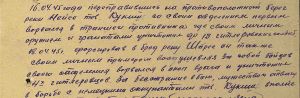 16.04.45 года переправившись на противоположный берег
реки Нейсе тов. Кукша со своим отделением первым
ворвался в траншеи противника где своим личным
оружием и гранатами уничтожил до 12 гитлеровских
18.04.45г. форсировав в брод реку Шпрее он также
своим личным примером воодушевляя на бой бойцов
своего отделения ворвался в окоп врага и уничтожил
гитлеровцев. За бесстрашие и мужество отвагу
в борьбе с немецкими оккупантами тов. Кукша вполне